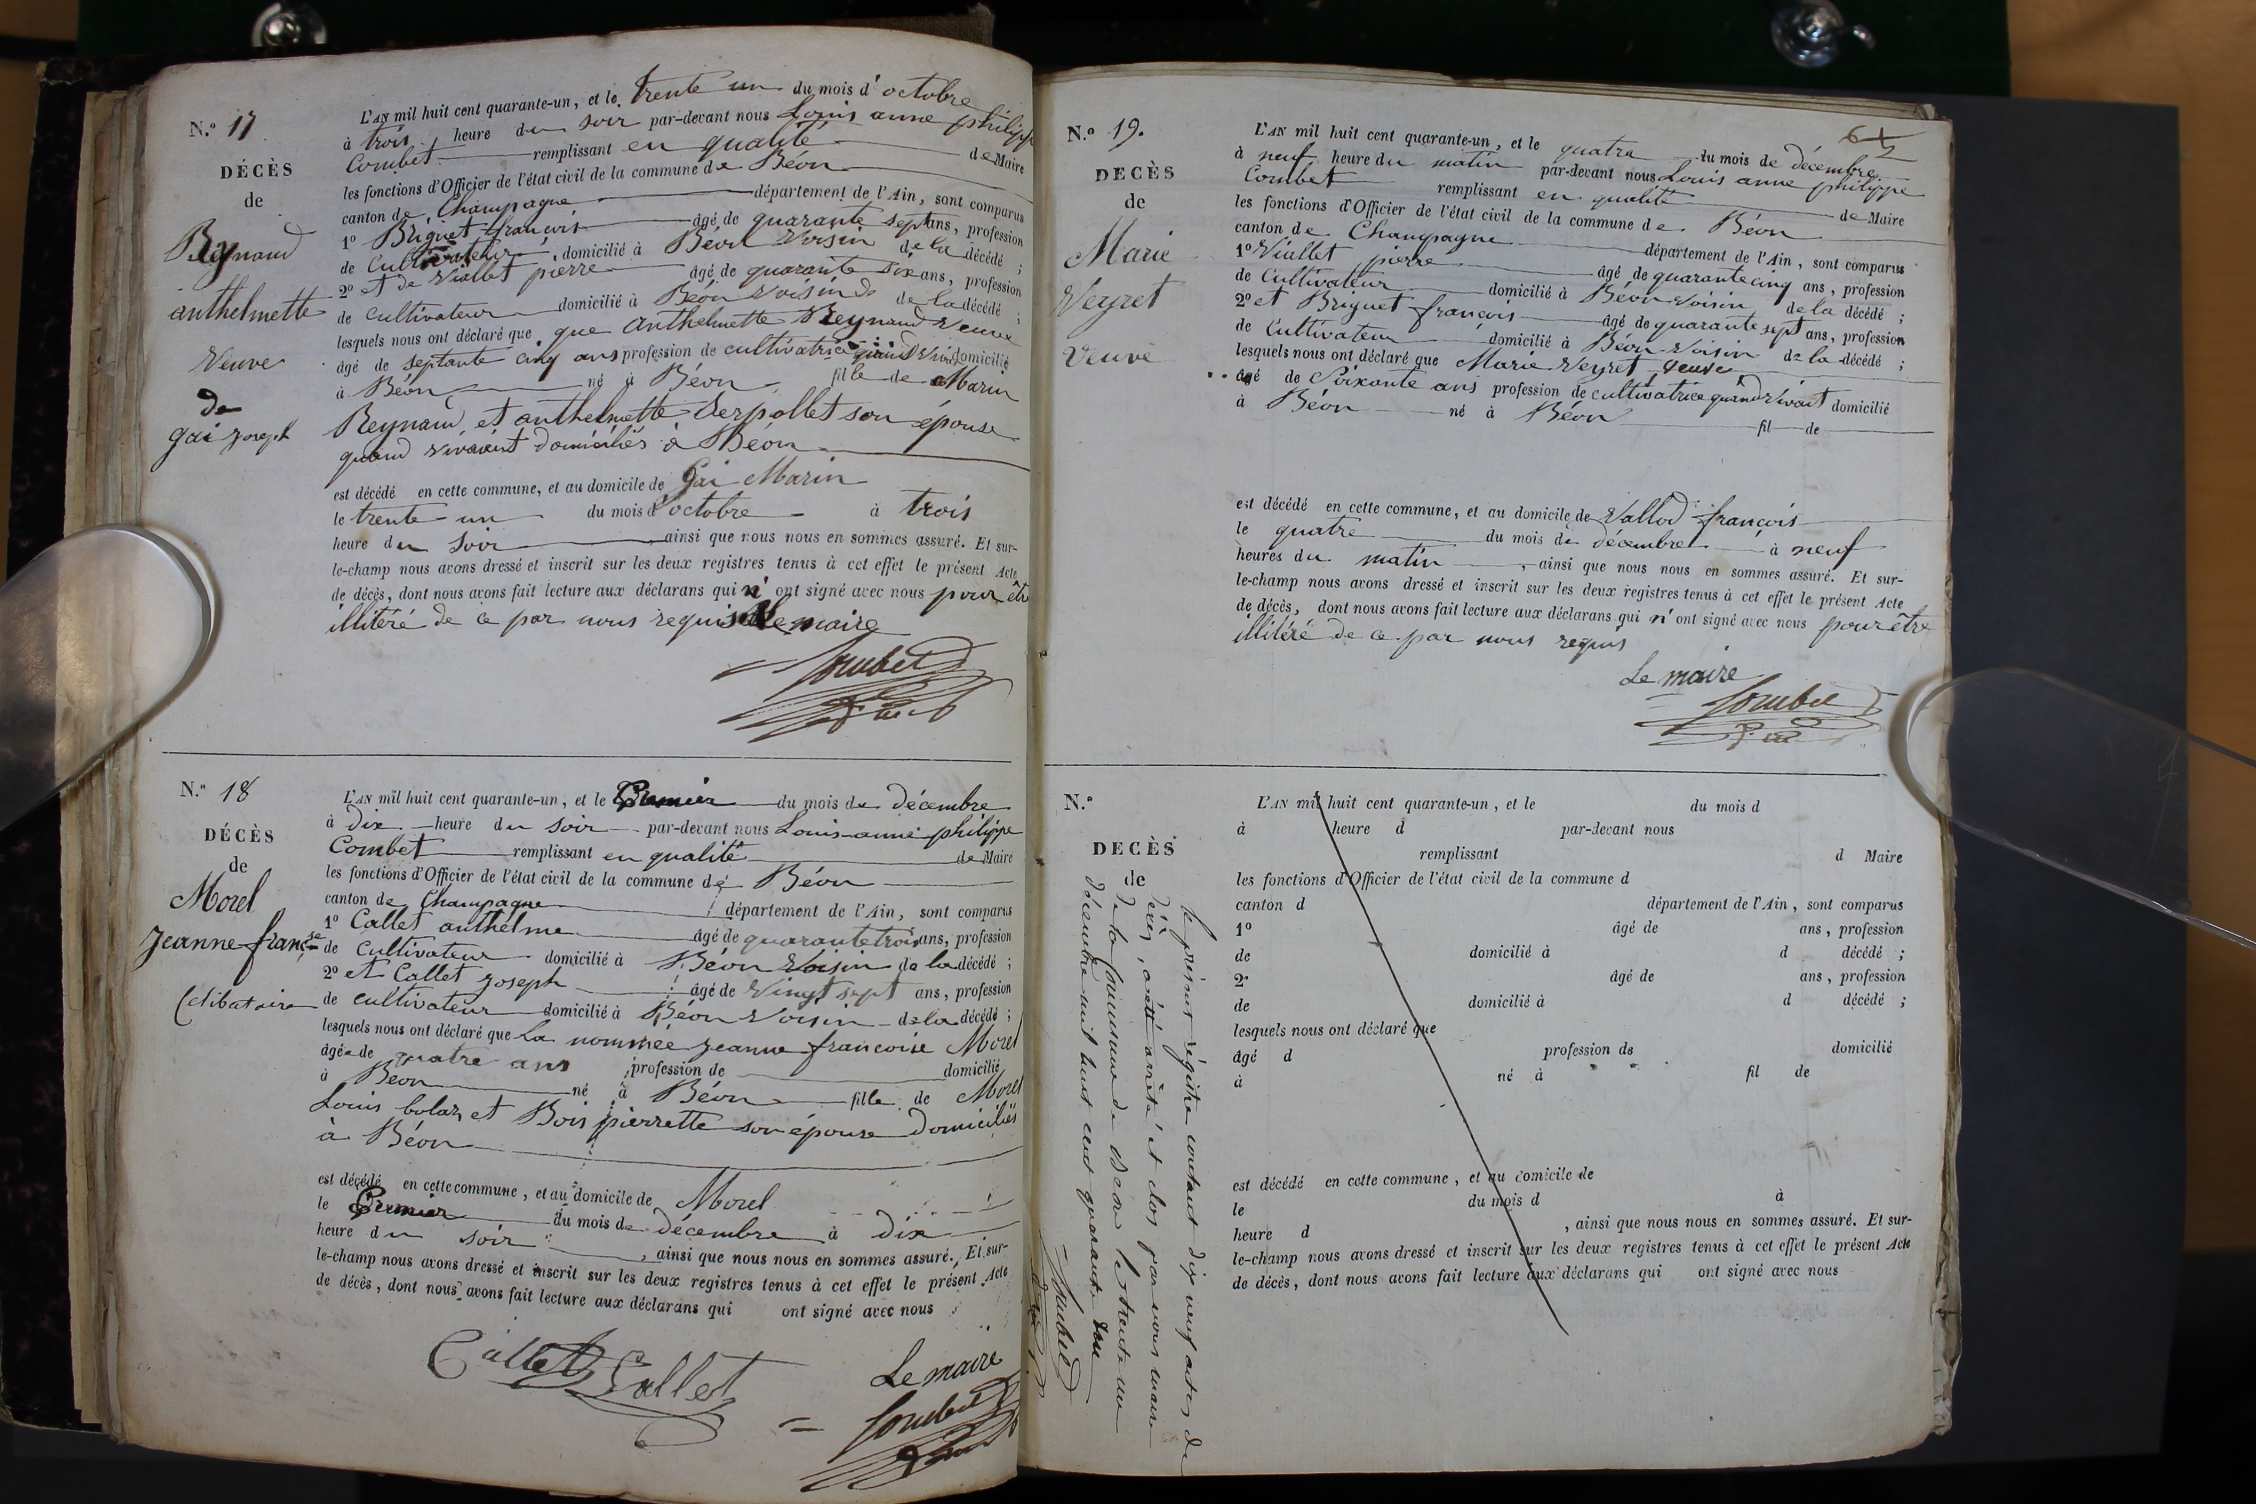 N.º 17
DÉCÈS
de
Reynaud
anthelmette
Veuve
de
gai Joseph
L'AN mil huit cent quarante-un, et le trente un du mois d'octobre
à trois heure du soir par-devant nous Louis anne philippe
Combet remplissant en qualité de Maire
les fonctions d'Officier de l'état civil de la commune de Béon
canton de Champagne département de l'Ain, sont comparus
1º Briguet françois âgé de quarante sept ans, profession
de Cultivateur, domicilié à Béon voisin de la décédé;
2º et de Viallet pierre âgé de quarante six ans, profession
de cultivateur domicilié à Béon voisin de la décédé;
lesquels nous ont déclaré que que anthelmette Reynaud veuve
âgé de septante cinq ans profession de cultivatrice quand vivait domicilié
à Béon né à Béon fille de Marin
Reynaud et anthelmette Serpollet son épouse
quand vivaient domiciliés à Béon
est décédé en cette commune, et au domicile de Gai Marin
le trente un du mois d'octobre à trois
heure du soir ainsi que nous nous en sommes assuré. Et sur-
le-champ nous avons dressé et inscrit sur les deux registres tenus à cet effet le présent Acte
de décès, dont nous avons fait lecture aux déclarans qui n'ont signé avec nous pour être
illitéré de ce par nous requis Le maire
Combet
N.º 18
DÉCÈS
de
Morel
Jeanne franç.se
Celibataire
L'AN mil huit cent quarante-un, et le Premier du mois de décembre
à dix heure du soir par-devant nous Louis anne philippe
Combet remplissant en qualité de Maire
les fonctions d'Officier de l'état civil de la commune de Béon
canton de Champagne département de l'Ain, sont comparus
1º Callet anthelme âgé de quarante trois ans, profession
de cultivateur domicilié à Béon voisin de la décédé;
2º et Callet joseph âgé de vingt sept ans, profession
de cultivateur domicilié à Béon voisin de la décédé;
lesquels nous ont déclaré que La nommée jeanne francoise Morel
âgée de quatre ans profession de domicilié
à Béon né à Béon fille de Morel
Louis bolaz et Bois pierrette son épouse domiciliés
à Béon
est décédé en cette commune, et au domicile de Morel
le Premier du mois de décembre à dix
heure du soir, ainsi que nous nous en sommes assuré. Et sur-
le-champ nous avons dressé et inscrit sur les deux registres tenus à cet effet le présent Acte
de décès, dont nous avons fait lecture aux déclarans qui ont signé avec nous
Callet Callet
Le maire
Combet
64
N.º 19.
DECÈS
de
Marie
Veyret
Veuve
L'AN mil huit cent quarante-un, et le quatre du mois de décembre
à neuf heure du matin par-devant nous Louis anne philippe
Combet remplissant en qualité de Maire
les fonctions d'Officier de l'état civil de la commune de Béon
canton de Champagne département de l'Ain, sont comparus
1º Viallet pierre âgé de quarante cinq ans, profession
de Cultivateur domicilié à Béon voisin de la décédé;
2º et Briguet françois âgé de quarante sept ans, profession
de Cultivateur domicilié à Béon voisin de la décédé;
lesquels nous ont déclaré que Marie Veyret veuve
âgé de Soixante ans profession de cultivatrice quand vivait domicilié
à Béon né à Béon fil de
est décédé en cette commune, et au domicile de Vallod françois
le quatre du mois de décembre à neuf
heures du matin, ainsi que nous nous en sommes assuré. Et sur-
le-champ nous avons dressé et inscrit sur les deux registres tenus à cet effet le présent Acte
de décès, dont nous avons fait lecture aux déclarans qui n'ont signé avec nous pour être
illitéré de ce par nous requis
Le maire
Combet
N.º
DECÈS
de
le présent régistre contenant dix neuf actes de
décès, a été arrêté et clos par nous maire
de la Commune de Béon le trente un
décembre mil huit cent quarante un
Combet
L'AN mil huit cent quarante-un, et le du mois d
à heure d par-devant nous
remplissant d Maire
les fonctions d'Officier de l'état civil de la commune d
canton d département de l'Ain, sont comparus
1º âgé de ans, profession
de domicilié à d décédé;
2º âgé de ans, profession
de domicilié à d décédé;
lesquels nous ont déclaré que
âgé d profession de domicilié
à né à fil de
est décédé en cette commune, et au domicile de
le du mois d à
heure d, ainsi que nous nous en sommes assuré. Et sur-
le-champ nous avons dressé et inscrit sur les deux registres tenus à cet effet le présent Acte
de décès, dont nous avons fait lecture aux déclarans qui ont signé avec nous